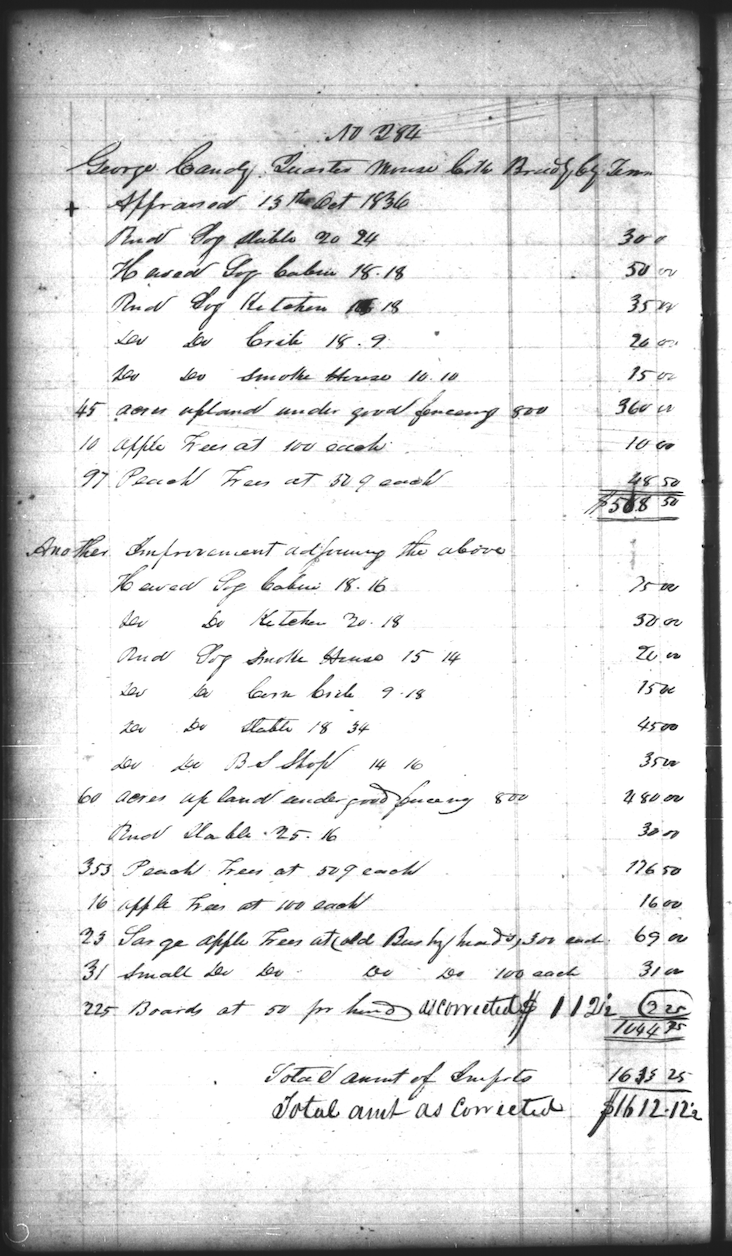 No 284
George Candy Quarter Mouse Creek Bradley Cty Tenn
+ Appraised 13th Oct 1836
Rnd Log Stable 20 24 30 0
Hewed Log Cabin 18.18 50 00
Rnd Log Kitchen 18 35 00
Do Do Crib 18.9 20 00
Do Do Smoke House 10.10 15 00
45 acres upland under good fenceing 800 360 00
10 apple Trees at 100 each 10 00
97 Peach Trees at 50 ¢ each 48 50
$568 50
Another Improvement adjoining the above
Hewed Log Cabin 18.16 75 00
Do Do Kitchen 20.18 30 00
Rnd Log Smoke House 15 14 20 00
Do Do Corn Crib 9.18 15 00
Do Do Stable 18 34 45 00
Do Do B S Shop 14 16 35 00
60 acres upland under good fenceing 800 480 00
Rnd Stable 25.16 30 00
353 Peach Trees at 50 ¢ each 176 50
16 apple Trees at 100 each 16 00
23 Large apple Trees at (old Bushyheads) 300 each 69 00
31 Small Do Do Do Do 100 each 31 00
225 Boards at 50 pr hund as corrected $ 1 12½ 2 25
1044 75
Total amnt of Imprts 25
Total amt as Corrected $1612.12½